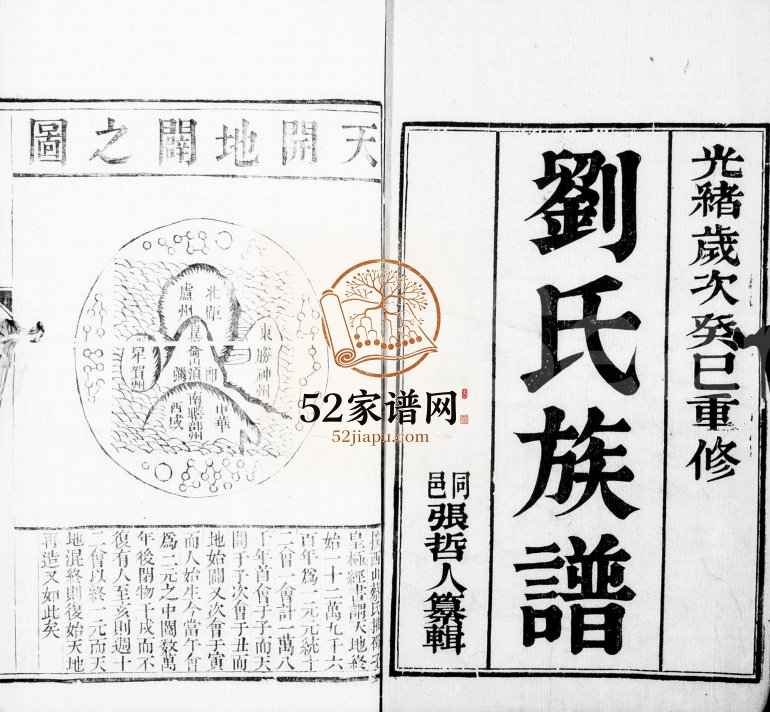 光緒歲次癸巳重修
劉氏族譜
同邑張哲人纂輯
天開地闢之圖
東勝神州
北俱
盧州
中華
南贍部州
西域
賀州
皇極經書謂天地終
始一十二萬九千六
百年為一元元統十
二會一會計一萬八
千年首會于子而天
開于子次會于丑而
地始闢又次會于寅
而人始生今當午會
為一元之中閱數萬
年後閉物于戌而不
復有人至亥則週十
二會以終一元而天
地混終則復始天地
再造又如此矣
52家谱网
52jiapu.com